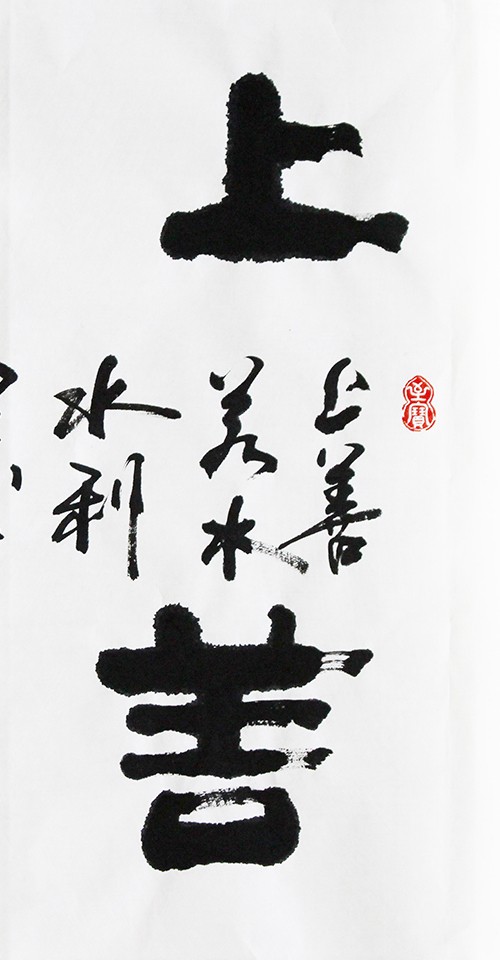 上善
上善
若水
水利